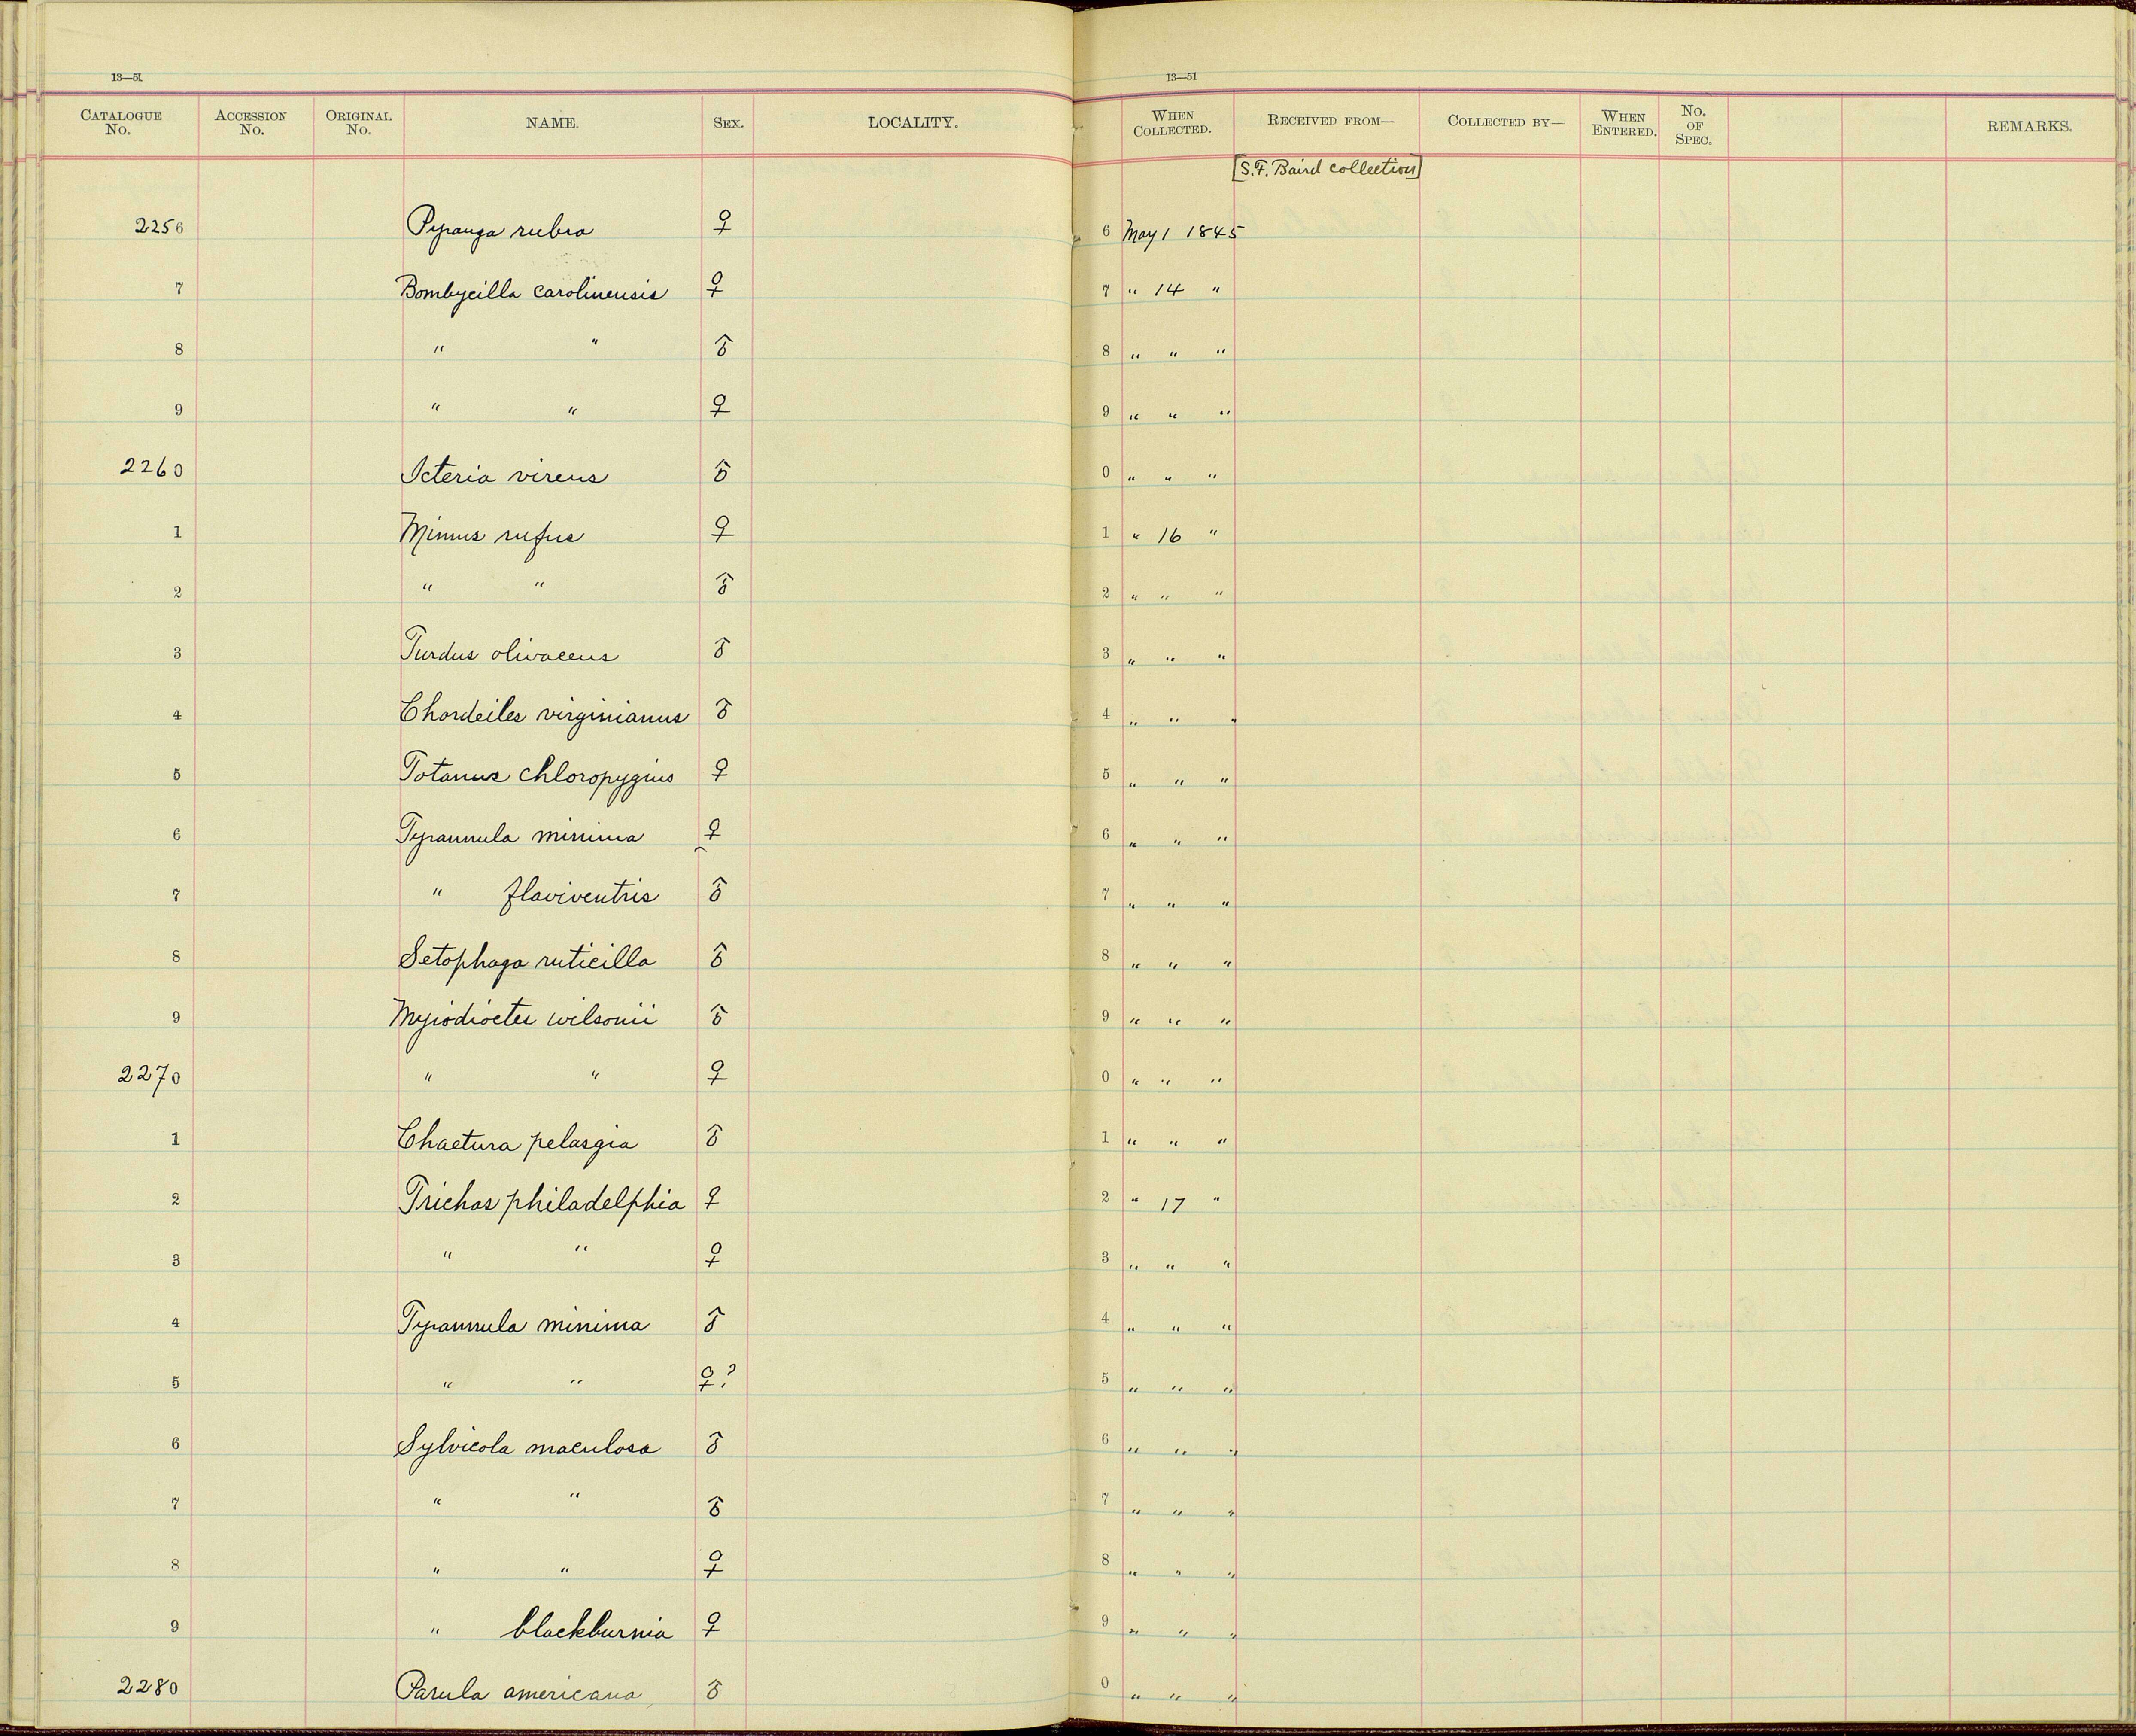 13—51
13—51
CATALOGUE No. ACCESSION No. ORIGINAL No. NAME. SEX. LOCALITY. WHEN COLLECTED. RECEIVED FROM— COLLECTED BY— WHEN ENTERED. No. OF SPEC. REMARKS.
[S.F. Baird collection]
2256 Pyranga rubra ♀ 6 May 1 1845
7 Bombycilla carolinensis ♀ 7 " 14 "
8 " " ♂ 8 " " "
9 " " ♀ 9 " " "
2260 Icteria virens ♂ 0 " " "
1 Mimus rufus ♀ 1 " 16 "
2 " " ♂ 2 " " "
3 Turdus olivaceus ♂ 3 " " "
4 Chordeiles virginianus ♂ 4 " " "
5 Totanus chloropygius ♀ 5 " " "
6 Tyrannula minima ♀ 6 " " "
7 " flaviventris ♂ 7 " " "
8 Setophaga ruticilla ♂ 8 " " "
9 Myiodioctes wilsonii ♂ 9 " " "
2270 " " ♀ 0 " " "
1 Chaetura pelasgia ♂ 1 " " "
2 Trichas philadelphia ♀ 2 " 17 "
3 " " ♀ 3 " " "
4 Tyrannula minima ♂ 4 " " "
5 " " ♀? 5 " " "
6 Sylvicola maculosa ♂ 6 " " "
7 " " ♂ 7 " " "
8 " " ♀ 8 " " "
9 " blackburnia ♀ 9 " " "
2280 Parula americana ♂ 0 " " "